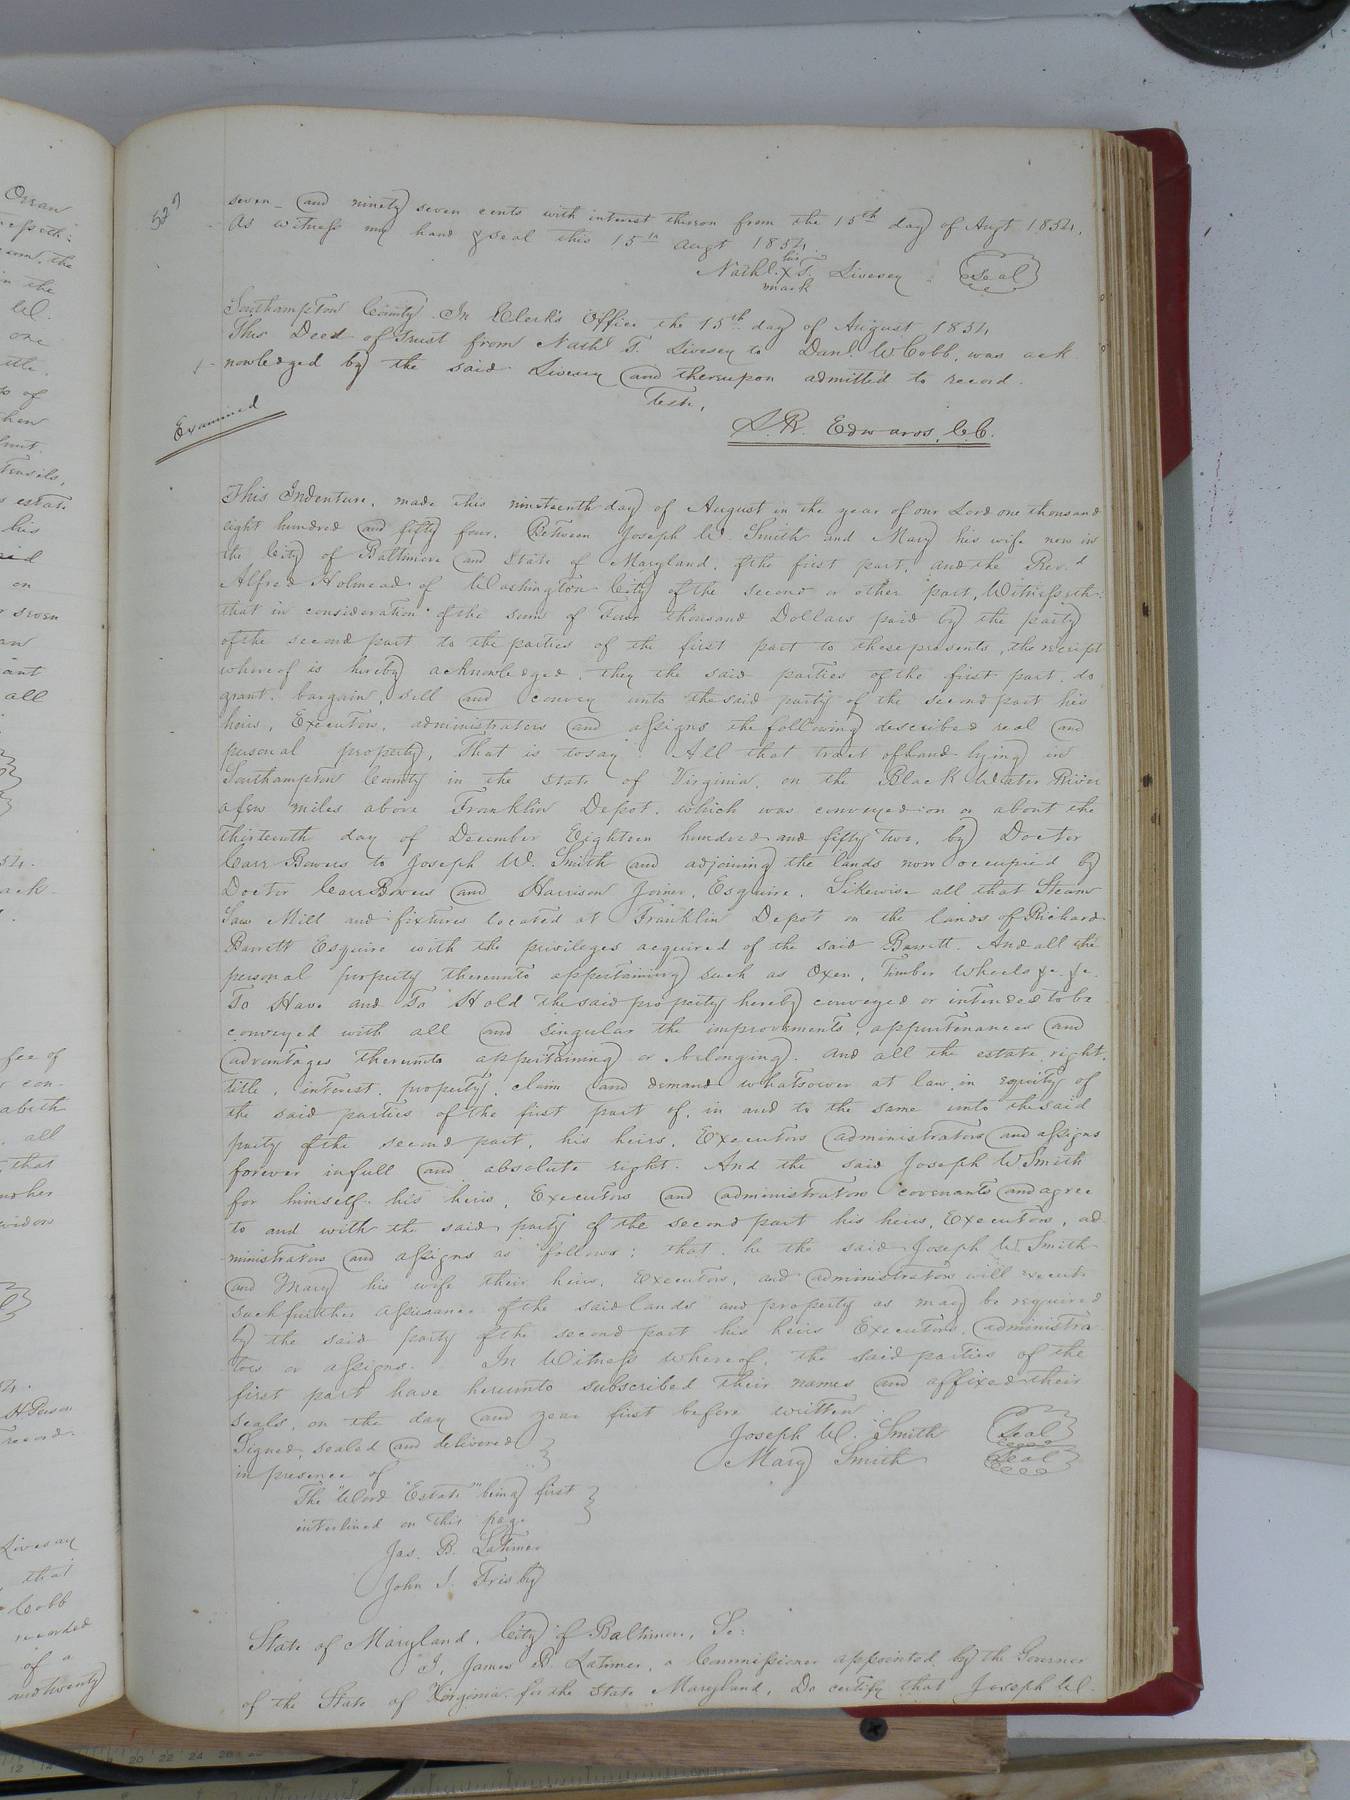 527
seven - and ninety seven cents with interest thereon from the 15th day of Augt 1854.
As witness my hand & seal this 15th augt 1854.
his
Nathl. X T. Livesey Seal
mark
Southampton County In Clerk's Office the 15th day of August 1854
This Deed of Trust from Nathl T. Livesey to Danl. W Cobb, was ack
nowledged by the said Livesey and thereupon admitted to record.
Teste,
Examined
L. R. Edwards, C.C.
This Indenture, made this nineteenth day of August in the year of our Lord one thousand
eight hundred and fifty four, Between Joseph W. Smith and Mary his wife now in
the City of Baltimore and State of Maryland, of the first part, and the Rev.d
Alfred Holmead of Washington City of the second or other part, Witnesseth:
that in consideration of the sum of Four thousand Dollars paid by the party
of the second part to the parties of the first part to these presents, the receipt
whereof is hereby acknowledged, they the said parties of the first part, do
grant, bargain, sell and convey unto the said party of the second part his
heirs, Executors, administrators and assigns the following described real and
personal property, that is to say: All that tract of land lying in
Southampton County in the State of Virginia, on the Black Water River
a few miles above Franklin Depot, which was conveyed on or about the
thirteenth day of December Eighteen hundred and fifty two, by Doctor
Carr Bowers to Joseph W. Smith and adjoining the lands now occupied by
Doctor Carr Bowers and Harrison Joiner, Esquire. Likewise all that Steam
Saw Mill and fixtures located at Franklin Depot on the lands of Richard
Barrett Esquire with the privileges acquired of the said Barrett. And all the
personal property thereunto appertaining such as Oxen, Timber Wheels &c. &c.
To Have and To Hold the said property hereby conveyed or intended to be
conveyed with all and singular the improvements, appurtenances and
advantages thereunto appertaining or belonging. and all the estate, right,
title, interest, property, claim and demand whatsoever at law, in equity of
the said parties of the first part of, in and to the same unto the said
party of the second part, his heirs, Executors administrators and assigns
forever in full and absolute right. And the said Joseph W Smith
for himself his heirs, Executors and administrators covenants and agree
to and with the said party of the second part his heirs, Executors, ad
ministrators and assigns as follows: that, he the said Joseph W. Smith
and Mary his wife their heirs, Executors, and administrators will execute
such further assurance of the said lands and property as may be required
by the said party of the second part his heirs Executors, administra
tors or assigns. In Witness whereof, the said parties of the
first part have hereunto subscribed their names and affixed their
seals, on the day and year first before written.
Signed, sealed and delivered Joseph W. Smith Seal
in presence of Mary Smith Seal
The "Word "Estate" being first
interlined on this page
Jas. B. Latimer
John I. Frisby
State of Maryland, City of Baltimore, Sc:
I, James B. Latimer, a Commissioner appointed by the Governor
of the State of Virginia for the State Maryland, Do certify that Joseph W.